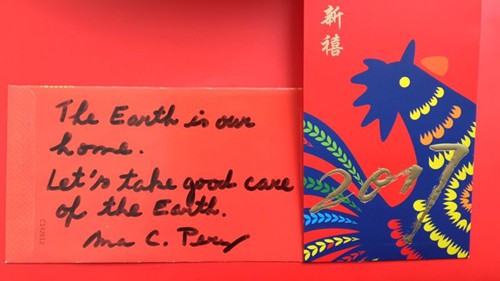 The Earth is our
home.
Let's take good care
of the Earth.
Ana C.
新禧
2017